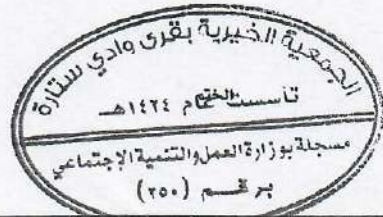 الجمعية الخيرية بقرى وادي ستارة
تأسست عام ١٤٢٤هـ
الختم
مسجلة بوزارة العمل والتنمية الإجتماعي
برقم (٢٥٠)